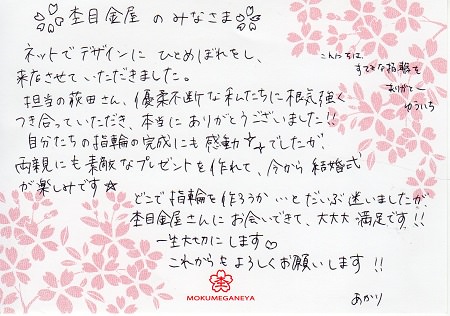 杢目金屋 のみなさま
ネットでデザインに ひとめぼれをし、
来店させていただきました。
担当の荻田さん、優柔不断な私たちに根気強く
つき合っていただき、本当にありがとうございました!!
自分たちの指輪の完成にも感動☆でしたが
両親にも素敵なプレゼントを作れて、今から結婚式
が楽しみです☆
こんにちは、
すてきな指輪を
ありがとー
ゆういち
どこで指輪を作ろうか…とだいぶ迷いましたが、
杢目金屋さんにお会いできて、大大大満足です!!
一生大切にします♡
これからもよろしくお願いします!!
あかり
MOKUMEGANEYA